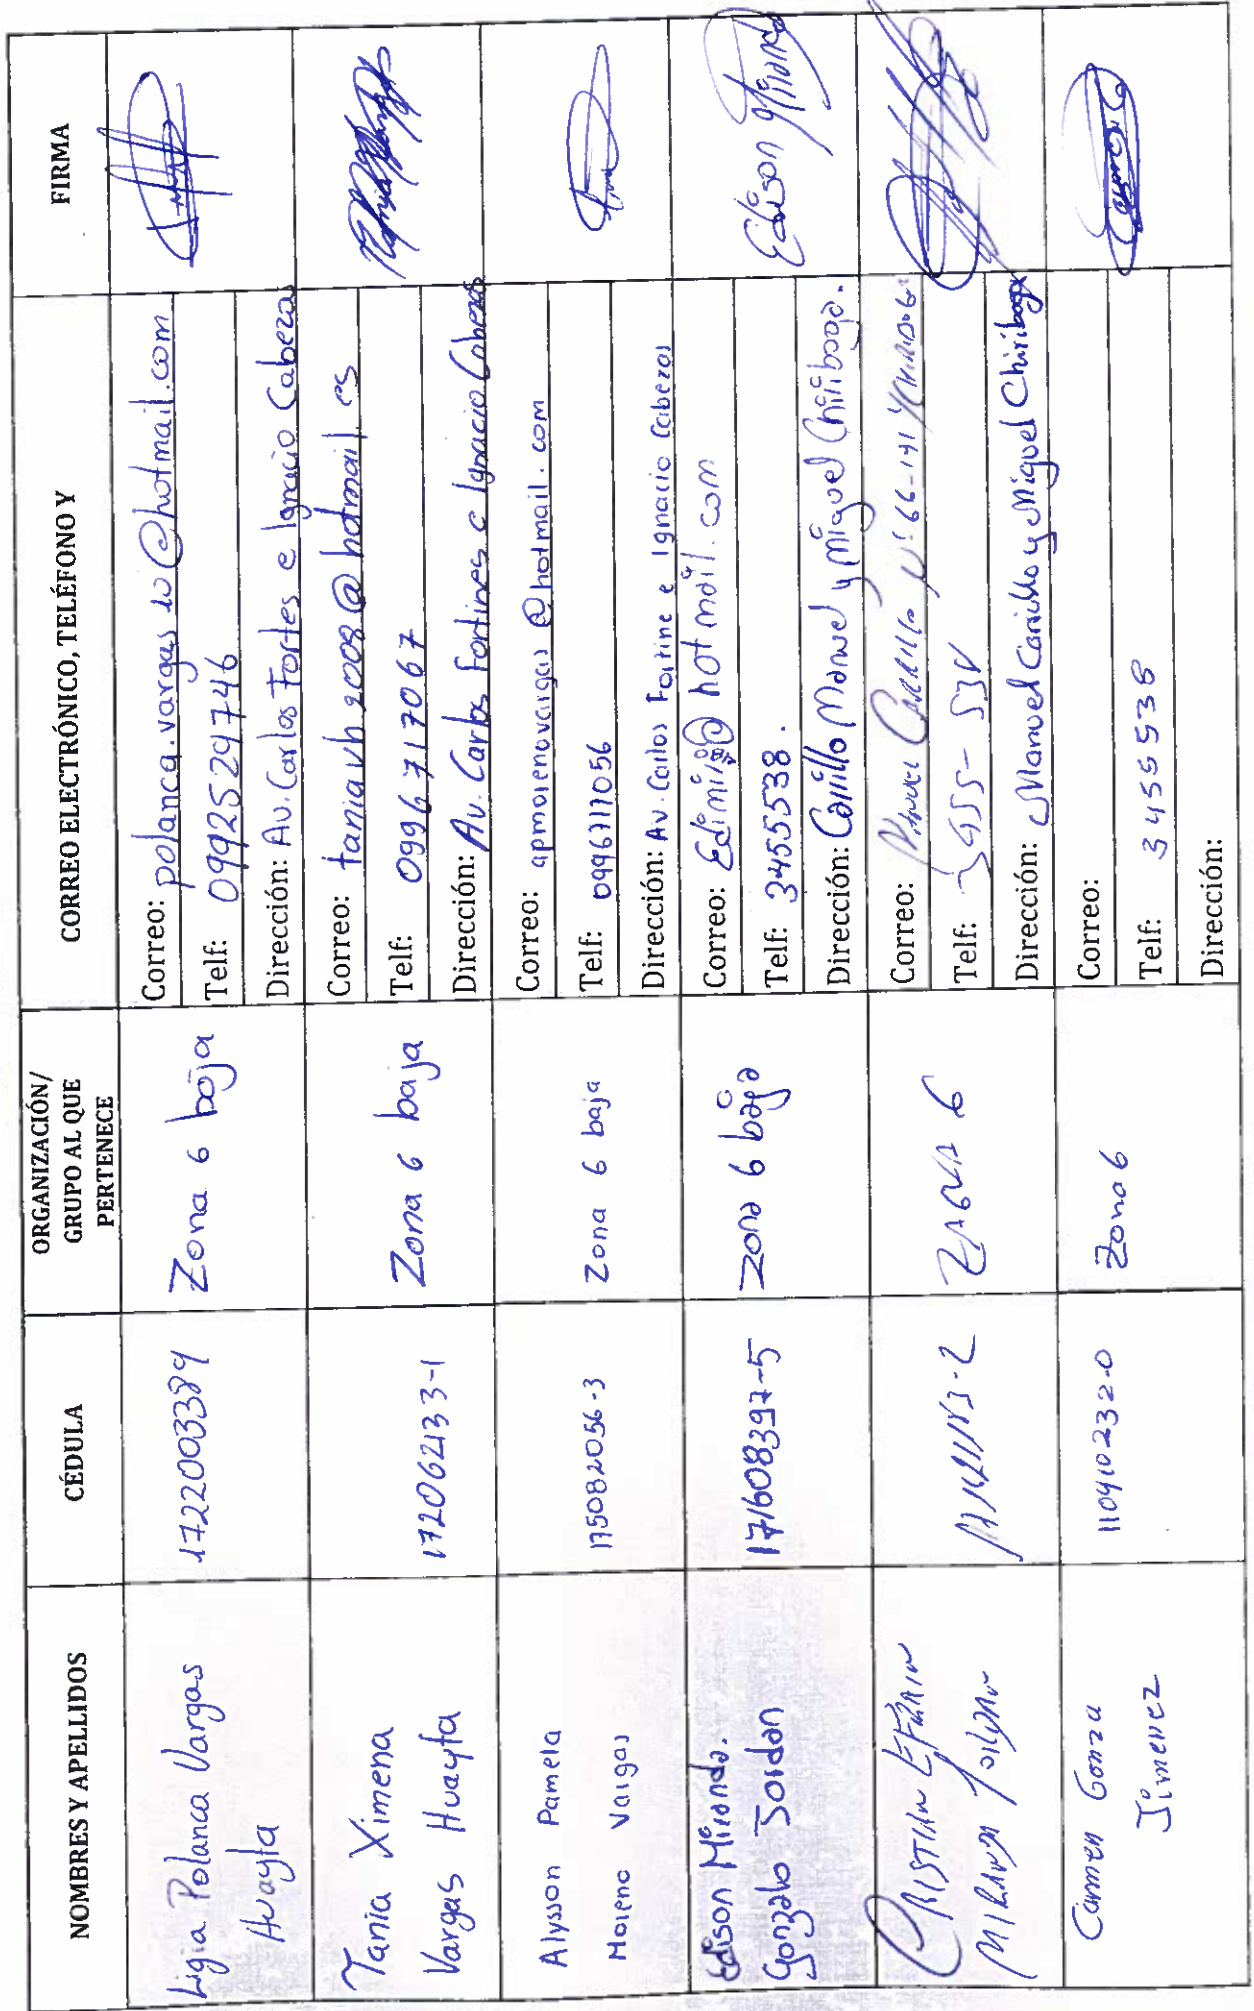 NOMBRES Y APELLIDOS
CÉDULA
ORGANIZACIÓN/
GRUPO AL QUE
PERTENECE
CORREO ELECTRÓNICO, TELÉFONO Y
FIRMA
Ligia Polanca Vargas
Huayta
1722003389
Zona 6 baja
Correo: polanca.vargas10@hotmail.com
Telf: 0992529746
Dirección: Av. Carlos Fortes e Ignacio Cabezas
Tania Ximena
Vargas Huayta
172062133-1
Zona 6 baja
Correo: taniavh2008@hotmail.es
Telf: 0996717067
Dirección: Av. Carlos Fortines e Ignacio Cabezas
Alysson Pamela
Moreno Vargas
175082056-3
Zona 6 baja
Correo: apmorenovargas@hotmail.com
Telf: 0996711056
Dirección: Av. Carlos Fortine e Ignacio Cabezas
Edison Miranda.
Gonzalo Jordan
171608397-5
Zona 6 baja
Correo: @hotmail.com
Telf: 3455538.
Dirección: Carrillo Manuel y Miguel Chiriboga.
Edison Miranda
Cristian Efrain
Miranda
Zona 6
Correo: Manuel Carrillo N° 66-141
Telf: 3455-538
Dirección: Manuel Carrillo y Miguel Chiriboga
Carmen Gonza
Jimenez
110410232-0
Zona 6
Correo:
Telf: 3455538
Dirección: